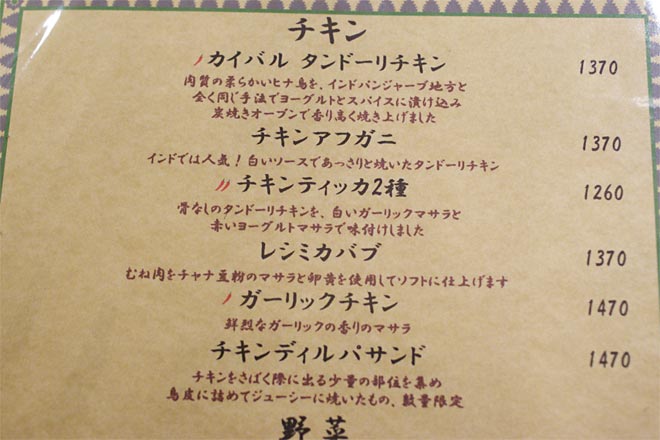 チキン
カイバル タンドーリチキン 1370
肉質の柔らかいヒナ鳥を、インドパンジャーブ地方と
全く同じ手法でヨーグルトとスパイスに漬け込み
炭焼きオーブンで香り高く焼き上げました
チキンアフガニ 1370
インドでは人気！白いソースであっさりと焼いたタンドーリチキン
チキンティッカ2種 1260
骨なしのタンドーリチキンを、白いガーリックマサラと
赤いヨーグルトマサラで味付けしました
レシミカバブ 1370
むね肉をチャナ豆粉のマサラと卵黄を使用してソフトに仕上げます
ガーリックチキン 1470
鮮烈なガーリックの香りのマサラ
チキンディルパサンド 1470
チキンをさばく際に出る少量の部位を集め
鳥皮に詰めてジューシーに焼いたもの、数量限定
野菜